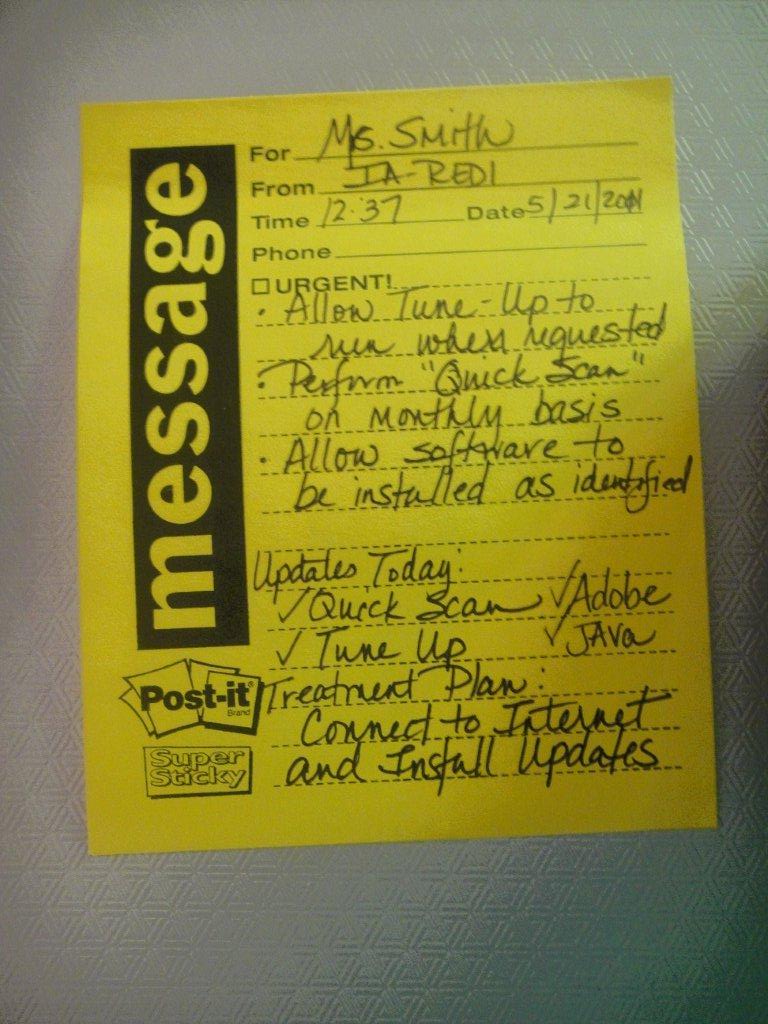 message
For Ms. Smith
From IA-REDI
Time 12:37 Date 5/21/20
Phone
URGENT!
• Allow Tune-Up to
run when requested
• Perform "Quick Scan"
on monthly basis
• Allow software to
be installed as identified
Updates Today:
✓ Quick Scan ✓ Adobe
✓ Tune Up ✓ JAva
Treatment Plan:
Connect to Internet
and Install Updates
Post-it®
Brand
Super
Sticky